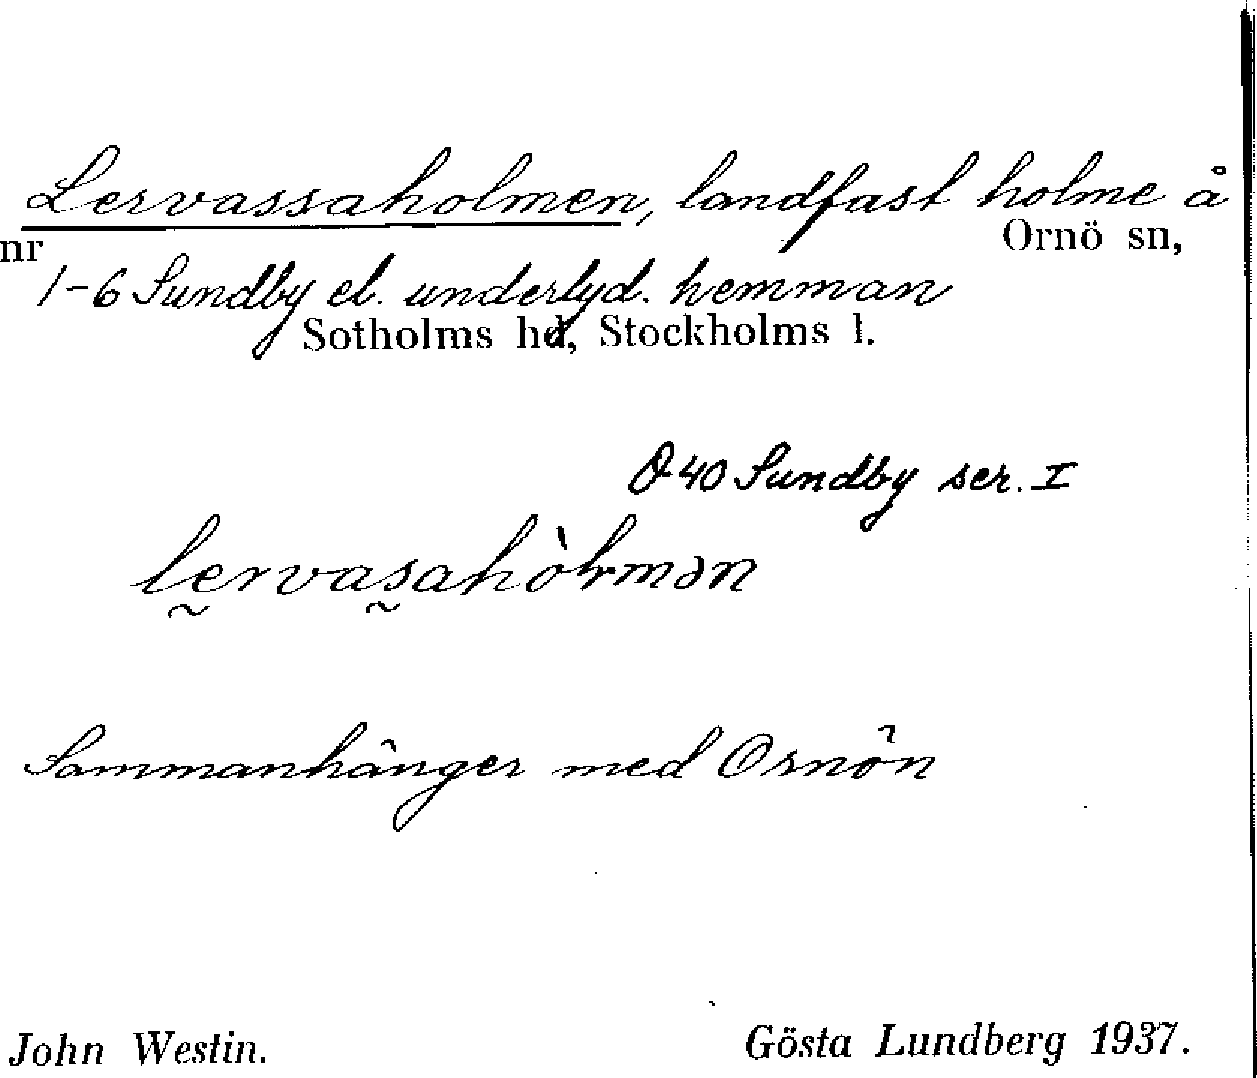 Lervassaholmen, landfast holme å
Ornö sn,
nr
1-6 Sundby el. underlyd. hemman
Sotholms hd, Stockholms l.
040 Sundby ser. I
lervasahòlmən
Sammanhänger med Ornön
John Westin.
Gösta Lundberg 1937.